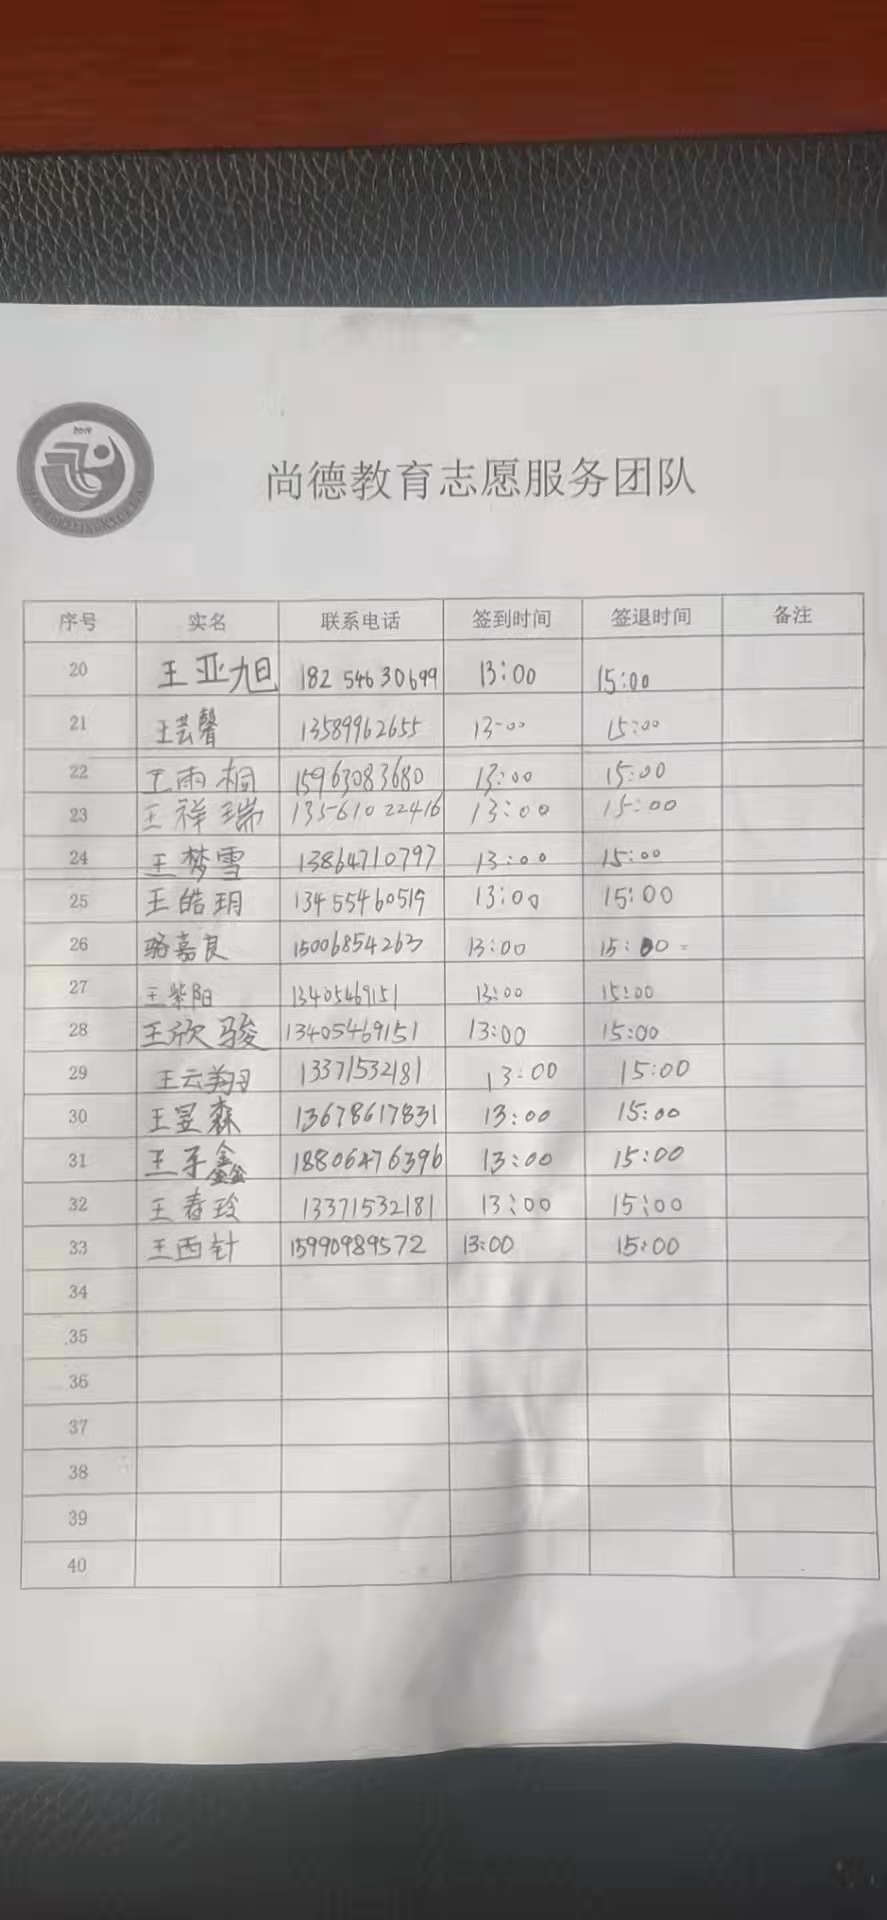 2019
尚德教育志愿服务团队
序号 实名 联系电话 签到时间 签退时间 备注
20 王亚旭 182 5463 0699 13:00 15:00
21 王芸馨 13589962655 13:00 15:00
22 王雨桐 15963083680 13:00 15:00
23 王祥瑞 13561022416 13:00 15:00
24 王梦雪 13864710797 13:00 15:00
25 王皓玥 13455460519 13:00 15:00
26 骆嘉良 15006854263 13:00 15:00
27 王紫阳 13405469151 13:00 15:00
28 王欣骏 13405469151 13:00 15:00
29 王云翔 13371532181 13:00 15:00
30 王昱森 13678617831 13:00 15:00
31 王子鑫 18806476396 13:00 15:00
32 王春玲 13371532181 13:00 15:00
33 王西针 15990989572 13:00 15:00
34
35
36
37
38
39
40